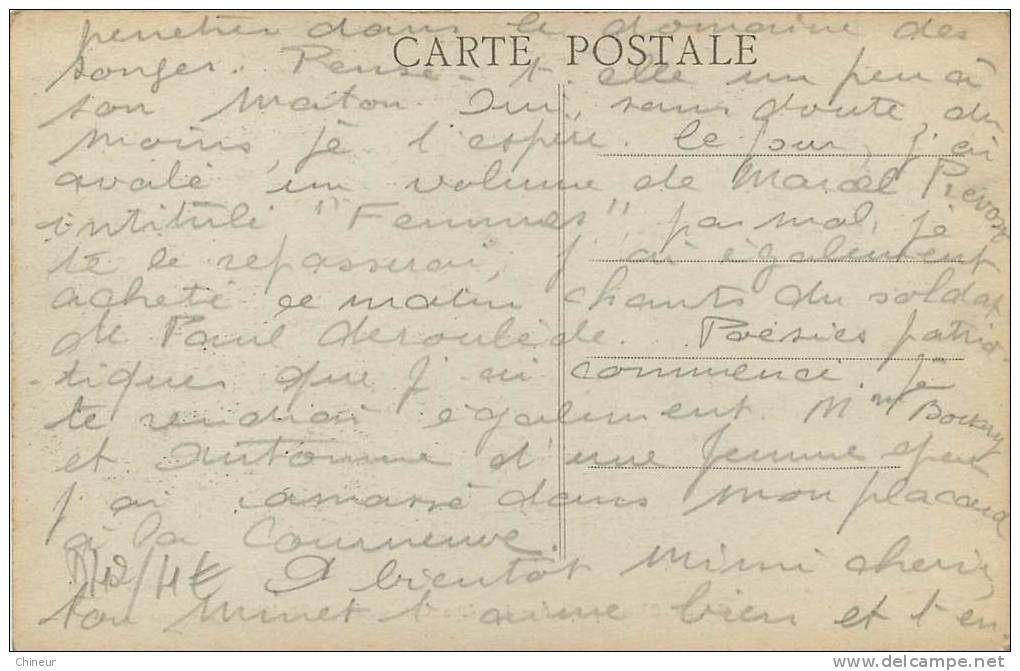 penetrer dans le domaine des
CARTE POSTALE
songes. Pense-t-elle un peu à
son Maton. Oui, sans doute, du
moins, je l'espère. Ce jour, j'ai
avalé un volume de Marcel Prévost
intitulé "Femmes", pas mal, je
te le repasserai, j'ai également
acheté ce matin chants du soldat
de Paul deroulède. Poésies patrio-
-tiques que j'ai commencé. Je
te rendrai également. Mme Bovary
et Automne d'une femme que
j'ai amassé dans mon placard
à la Courneuve.
A bientôt Mimi cherie,
ton Minet t'aime bien et t'en-
Chineur
delcampe.net